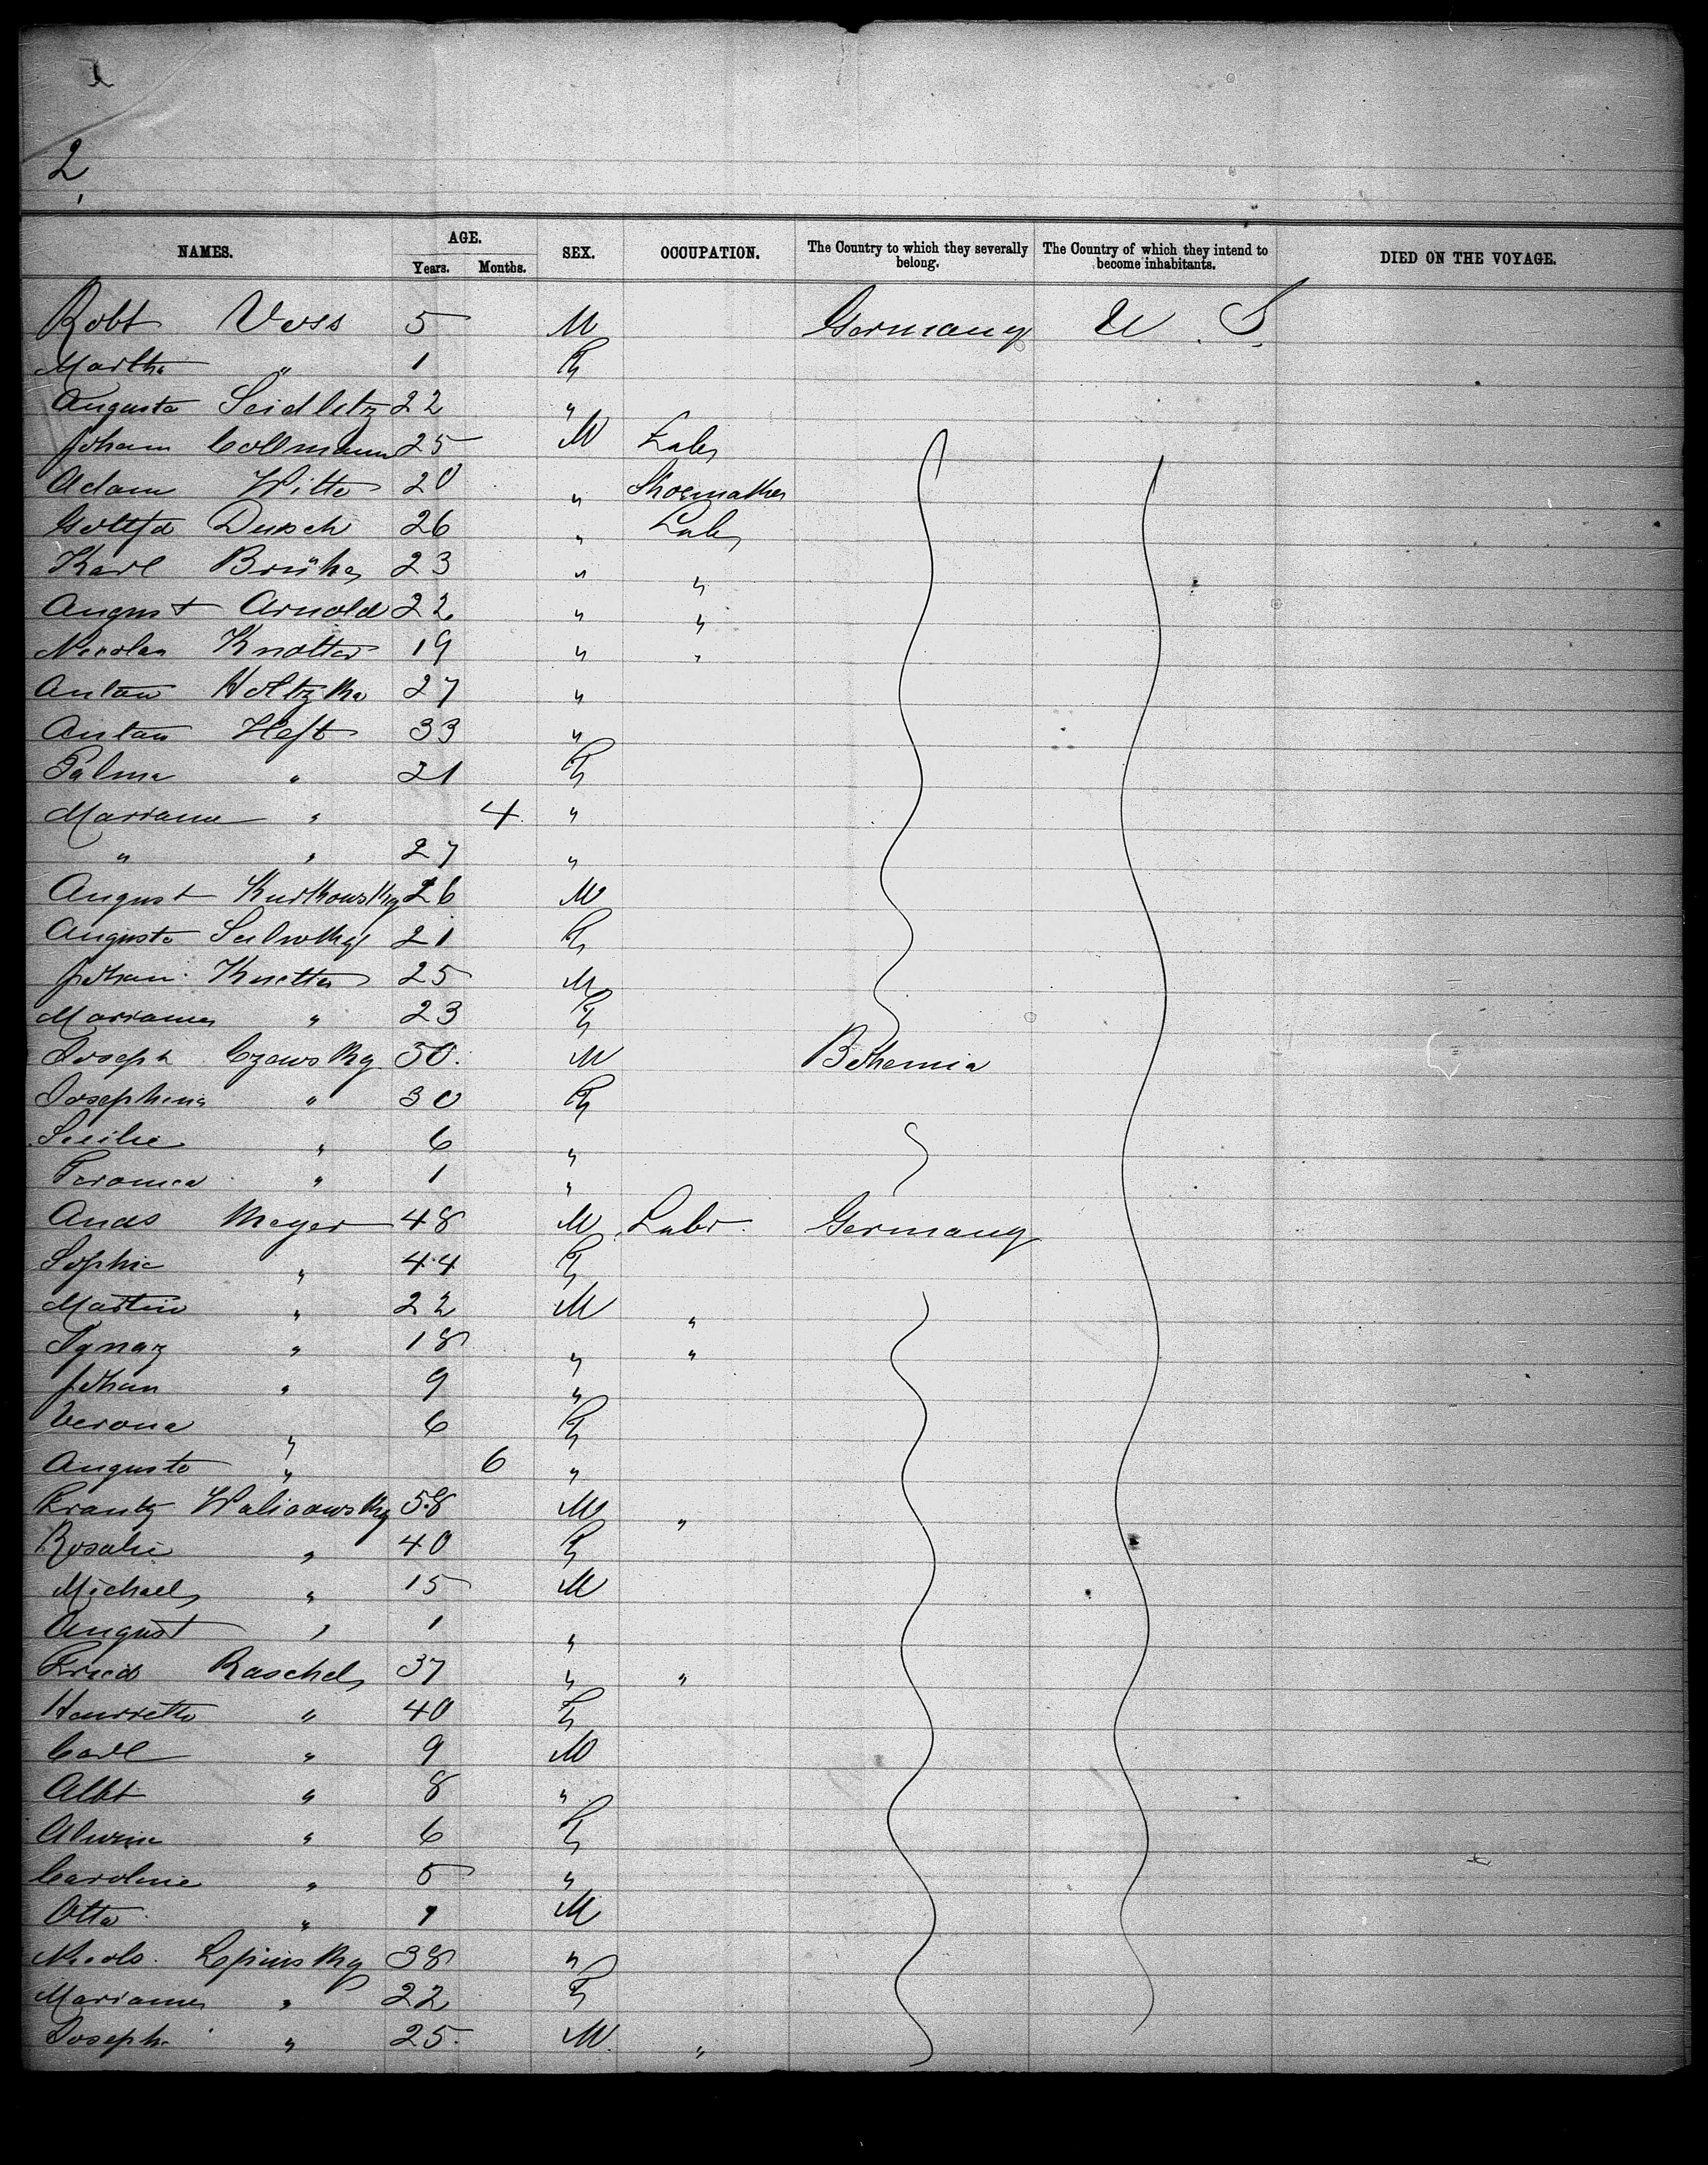 2
NAMES. AGE. SEX. OCCUPATION. The Country to which they severally belong. The Country of which they intend to become inhabitants. DIED ON THE VOYAGE.
Years. Months.
Robt Voss 5 M Germany U. S.
Martha " 1 F
Augusta Seidlitz 22 "
Johann Collmann 25 M Labr
Adam Witte 20 " Shoemaker
Gottfd 26 " Labr
Karl 23 " "
August Arnold 22 " "
Nicolas Knotter 19 " "
Antan Holtzka 27 "
Antan Heft 33 "
Palma " 21 F
Mariana " 4 "
" " 27 "
August Kurkowsky 26 M
Augusta 21 F
Johan Knetter 25 M
Marianna " 23 F
Joseph Czewsky 30 M Bohemia
Josephina " 30 F
" 6 "
" 1 "
Ands Meyer 48 M Labr Germany
Sophie " 44 F
Martin " 22 M "
Ignaz " 18 " "
Johan " 9 "
Verona " 6 F
Augusta " 6 "
Frantz 58 M "
Rosalie " 40 F
Michael " 15 M
August " 1 "
Fried Raschel 37 " "
Henrietta " 40 F
Carl " 9 M
Albt " 8 "
Alwine " 6 F
Caroline " 5 "
Otto " 9 M
Nicols. Lepinsky 38 "
Marianna " 22 F
Joseph " 25 M "